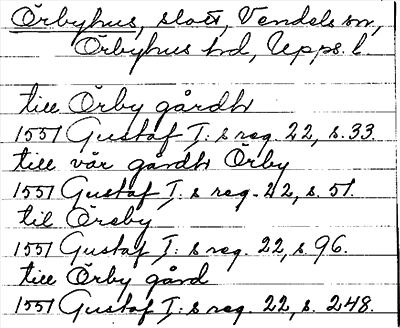 Örbyhus, slott, Vendels sn,
Örbyhus hd, Upps. l.
till Örby gårdh
1551 Gustaf I:s reg. 22, s. 33.
till vår gårdh Örby
1551 Gustaf I:s reg. 22, s. 51.
til Örsby
1551 Gustaf I:s reg. 22, s. 96.
till Örby gård
1551 Gustaf I:s reg. 22, s. 248.